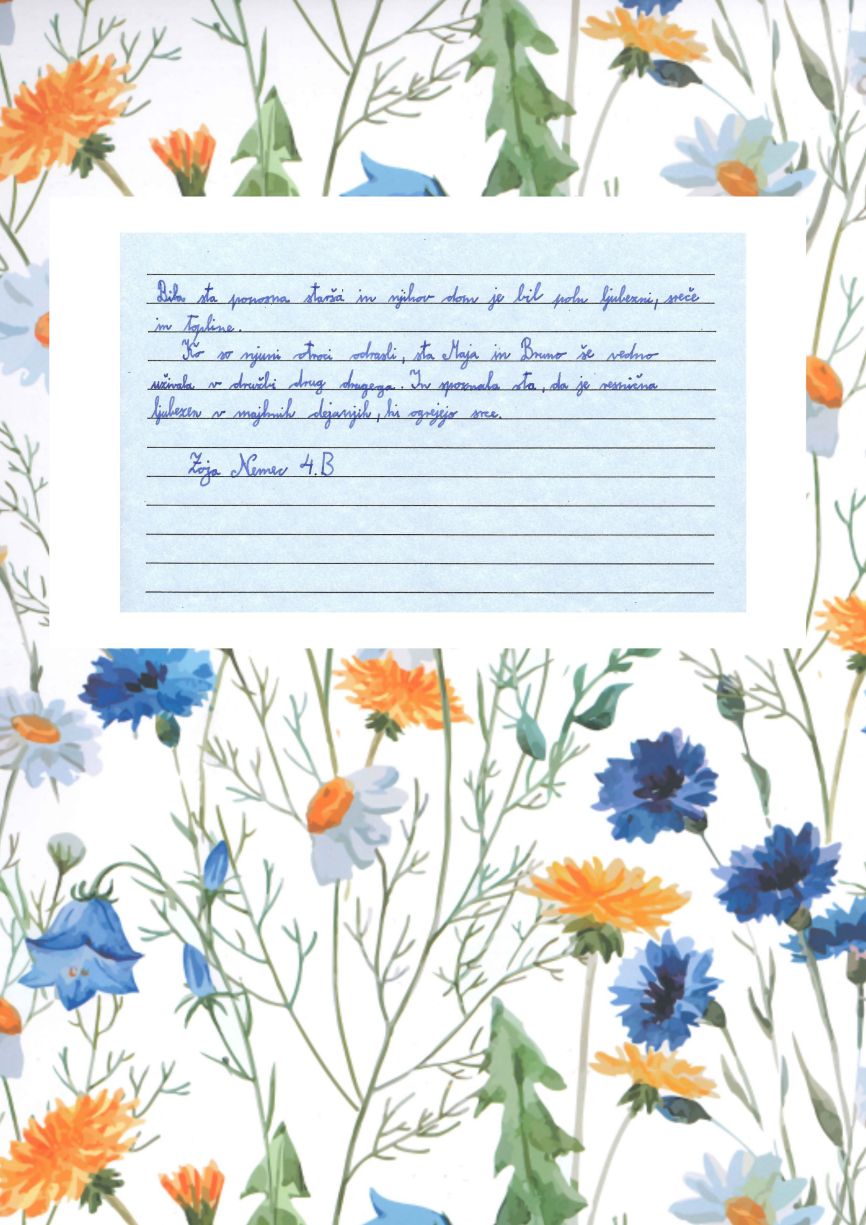 Bila sta ponosna starša in njihov dom je bil poln ljubezni, sreče
in topline.
Ko so njuni otroci odrasli, sta Maja in Bruno še vedno
uživala v družbi drug drugega. In spoznala sta, da je resnična
ljubezen v majhnih dejanjih, ki ogrejejo srce.
Zoja Nemec 4.B